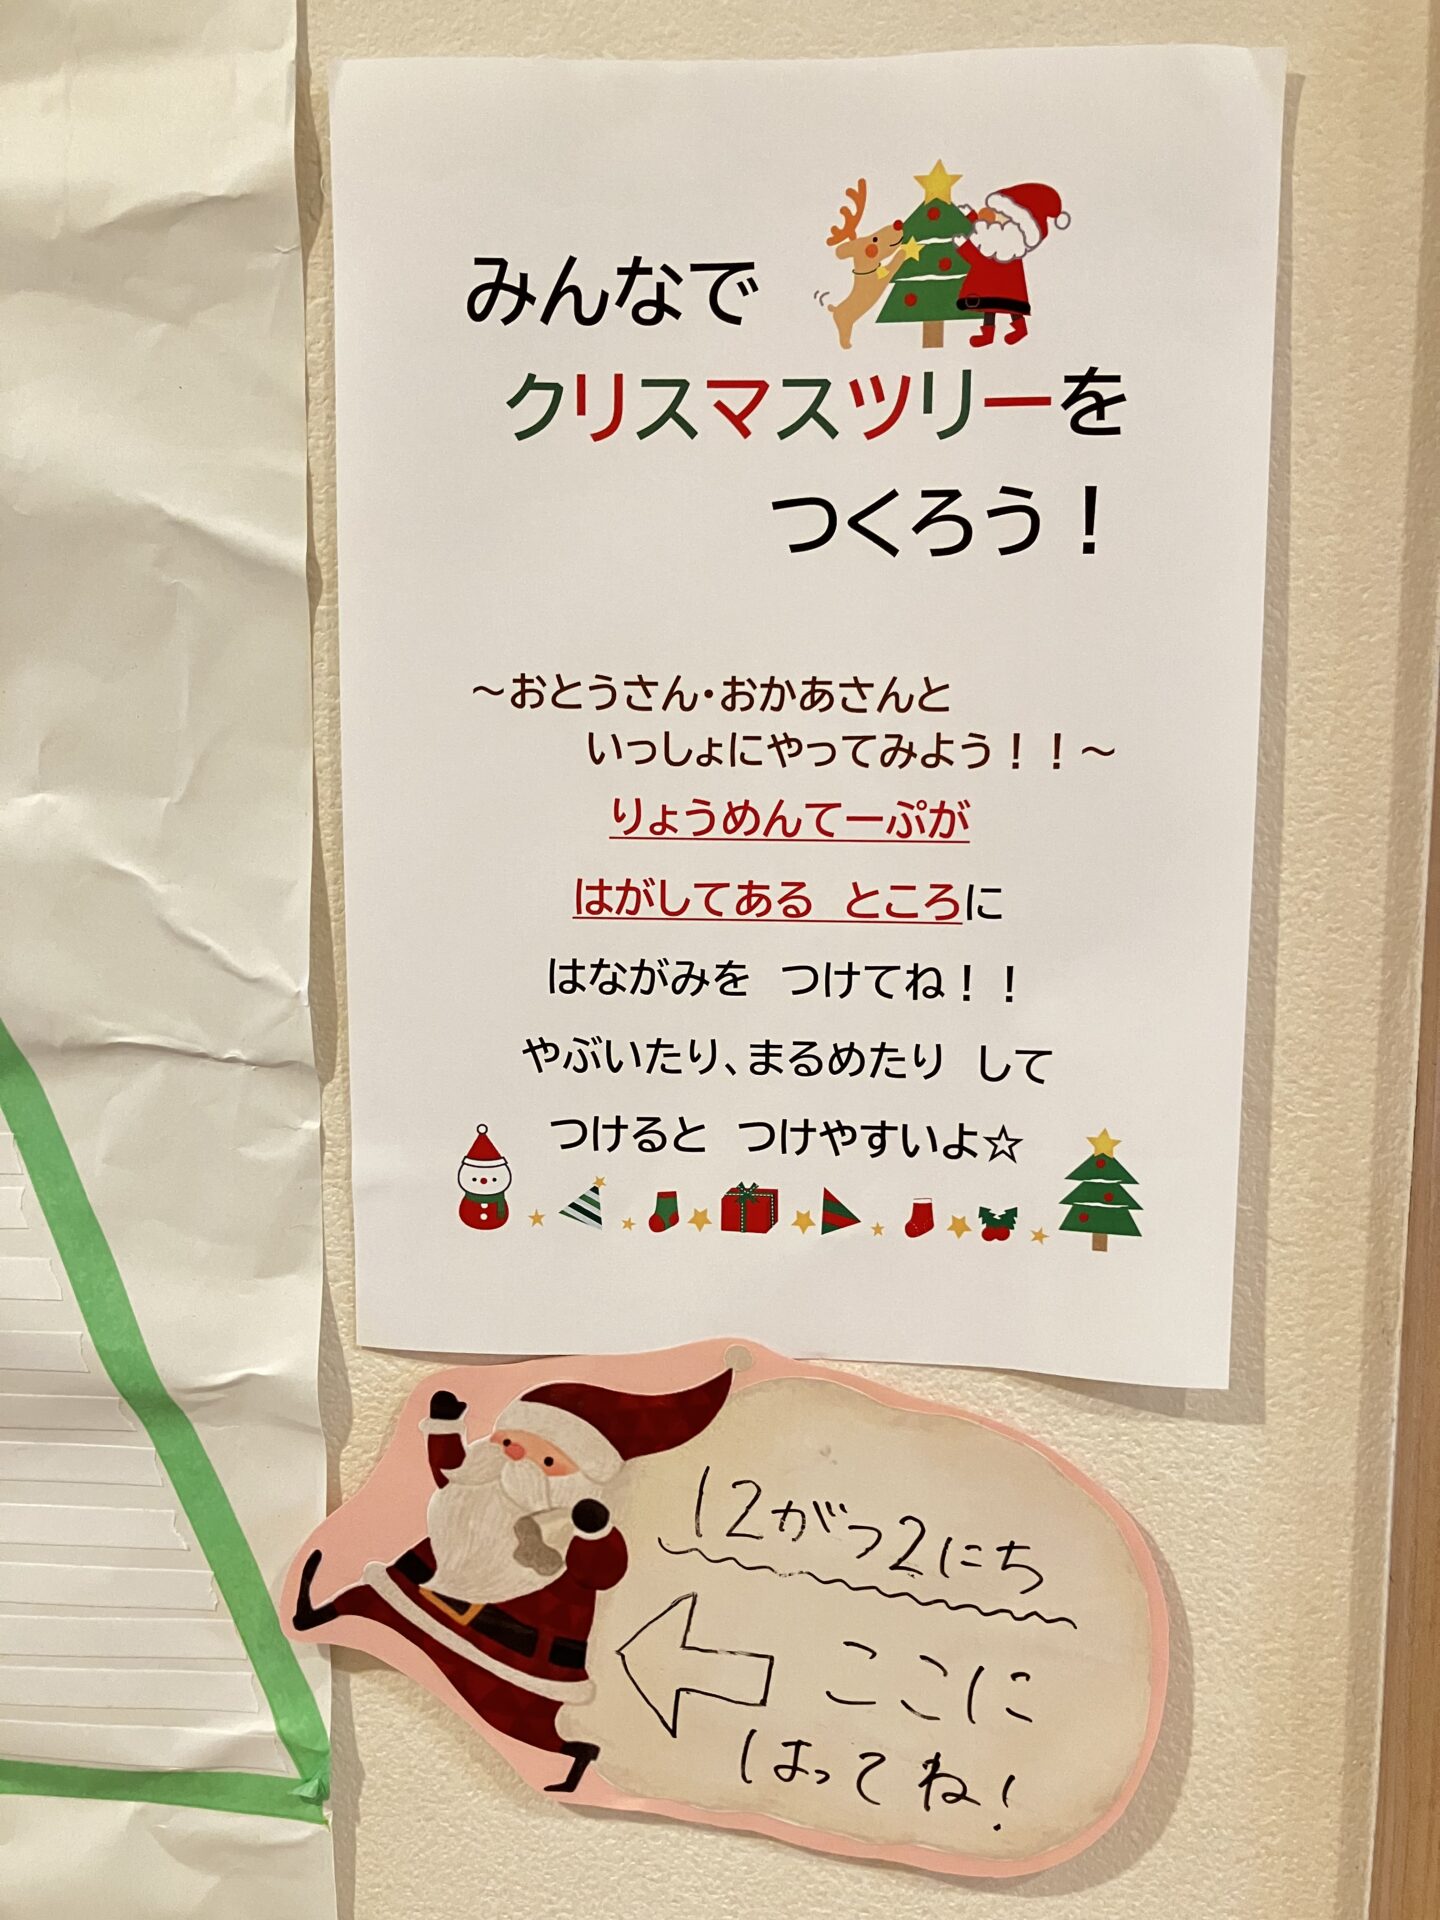 みんなで
クリスマスツリーを
つくろう！
～おとうさん・おかあさんと
いっしょにやってみよう！！～
りょうめんてーぷが
はがしてある　ところに
はながみを　つけてね！！
やぶいたり、まるめたり　して
つけると　つけやすいよ☆
12がつ2にち
ここに
はってね！